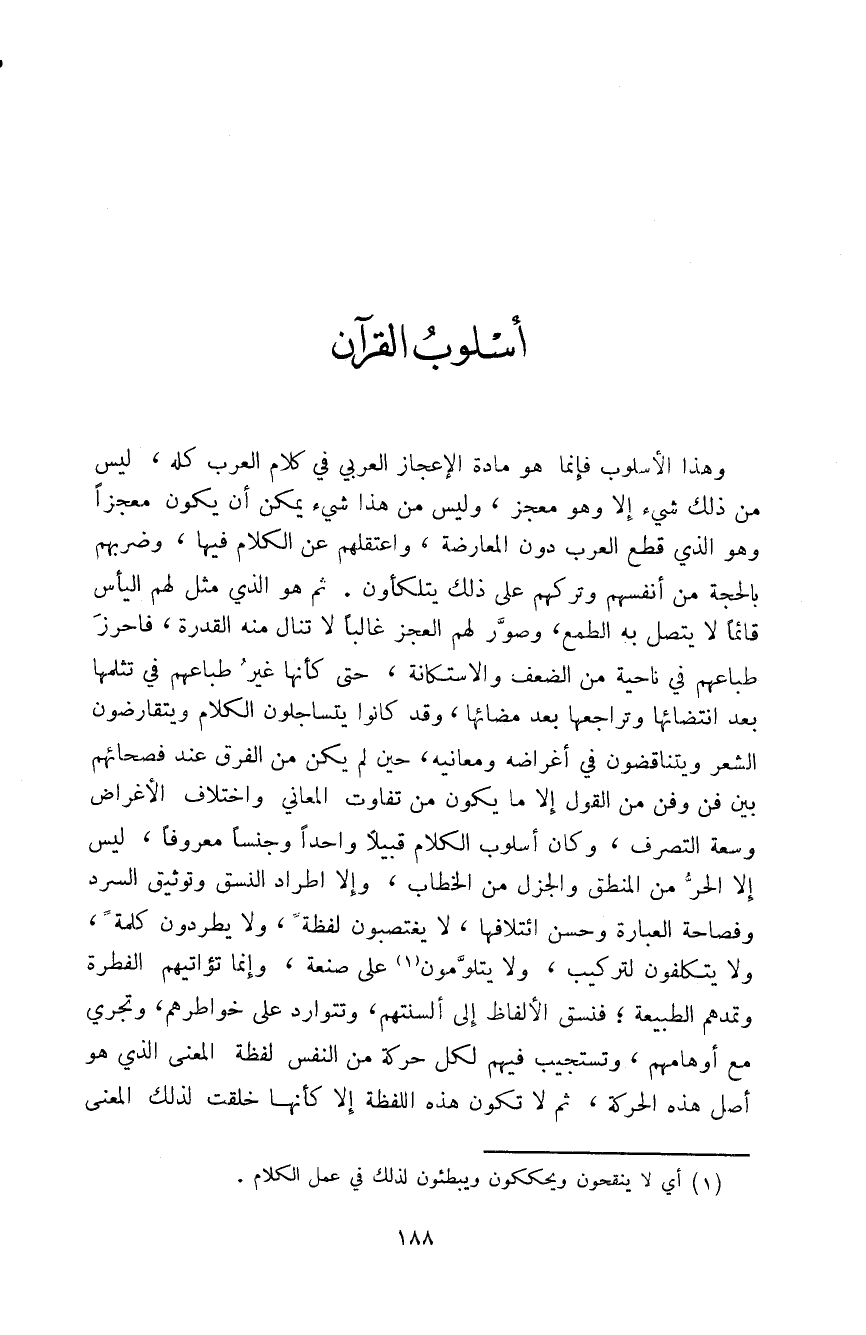 أسْلوبُ القرآن
وهذا الأسلوب فإنما هو مادة الإعجاز العربي في كلام العرب كله ، ليس
من ذلك شيء إلا وهو معجز ، وليس من هذا شيء يمكن أن يكون معجزاً
وهو الذي قطع العرب دون المعارضة ، واعتقلهم عن الكلام فيها ، وضربهم
بالحجة من أنفسهم وتركهم على ذلك يتلكأون . ثم هو الذي مثل لهم اليأس
قائماً لا يتصل به الطمع، وصوَّر لهم العجز غالباً لا تنال منه القدرة ، فاحرزَ
طباعهم في ناحية من الضعف والاستكانة ، حتى كأنها غيرُ طباعهم في تثلمها
بعد انتضائها وتراجعها بعد مضائها ، وقد كانوا يتساجلون الكلام ويتقارضون
الشعر ويتناقضون في أغراضه ومعانيه، حين لم يكن من الفرق عند فصحائهم
بين فن وفن من القول إلا ما يكون من تفاوت المعاني واختلاف الأغراض
وسعة التصرف ، وكان أسلوب الكلام قبيلاً واحداً وجنساً معروفاً ، ليس
إلا الحرُّ من المنطق والجزل من الخطاب ، وإلا اطراد النسق وتوثيق السرد
وفصاحة العبارة وحسن ائتلافها ، لا يغتصبون لفظةً ، ولا يطردون كلمةً ،
ولا يتكلفون لتركيب ، ولا يتلوَّمون(١) على صنعة ، وإنما تؤاتيهم الفطرة
وتمدهم الطبيعة ؛ فنسق الألفاظ إلى ألسنتهم، وتتوارد على خواطرهم، وتجري
مع أوهامهم ، وتستجيب فيهم لكل حركة من النفس لفظة المعنى الذي هو
أصل هذه الحركة ، ثم لا تكون هذه اللفظة إلا كأنها خلقت لذلك المعنى
(١) أي لا ينقحون ويحككون ويبطئون لذلك في عمل الكلام .
١٨٨